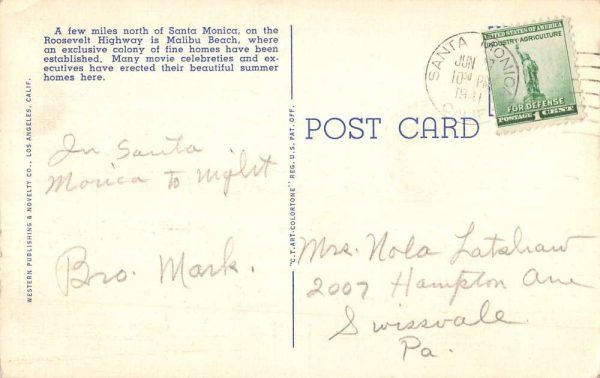 A few miles north of Santa Monica, on the
Roosevelt Highway is Malibu Beach, where
an exclusive colony of fine homes have been
established. Many movie celebreties and ex-
ecutives have erected their beautiful summer
homes here.
WESTERN PUBLISHING & NOVELTY CO., LOS ANGELES, CALIF.
In Santa
Monica to night
Bro. Mark.
"C.T. ART-COLORTONE" REG. U.S. PAT. OFF.
POST CARD
SANTA MONICA
JUN
10
PM
CALIF
UNITED STATES OF AMERICA
INDUSTRY·AGRICULTURE
FOR DEFENSE
POSTAGE 1 CENT
Mrs. Nola Latshaw
2007 Hampton Ave
Swissvale
Pa.